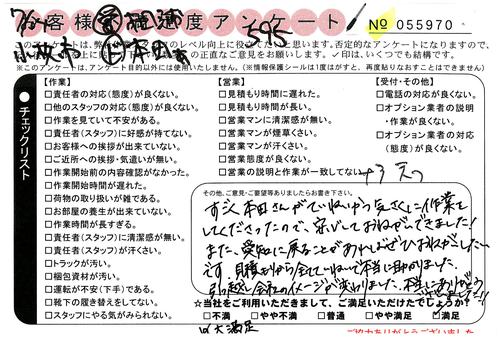 お客様満足度アンケート
№ 055970
このアンケートは、弊社の
レベル向上に役立てたいと思います。否定的なアンケートになりますので、
正直なご意見をお願いします。✓印は、いくつでも結構です。
※このアンケートは、アンケート目的以外には使用いたしません。(※情報保護シールは1度はがすと、再度貼りなおすことはできません)
チェックリスト
【作業】
□責任者の対応(態度)が良くない。
□他のスタッフの対応(態度)が良くない。
□作業を見ていて不安がある。
□責任者(スタッフ)に好感が持てない。
□お客様への挨拶が出来ていない。
□ご近所への挨拶・気遣いが無い。
□作業開始前の内容確認がなかった。
□作業開始時間が遅れた。
□荷物の取り扱いが雑である。
□お部屋の養生が出来ていない。
□作業時間が長すぎる。
□責任者(スタッフ)に清潔感が無い。
□責任者(スタッフ)が汗くさい。
□トラックが汚い。
□梱包資材が汚い。
□運転が不安(下手)である。
□靴下の履き替えをしてない。
□スタッフにやる気がみられない。
【営業】
□見積もりに遅れた。
□見積もり時間が長い。
□営業マンに清潔感が無い。
□営業マンが煙草くさい。
□営業マンが汗くさい。
□営業態度が良くない。
□営業の説明と作業が一致してない。
【受付・その他】
□電話の対応が良くない。
□オプション業者の説明
・作業が良くない。
□オプション業者の対応
(態度)が良くない。
その他、ご意見・ご要望等ありましたらお書き下さい。
すごく本田さんがていねいかつ気さくに作業を
してくださったので、安心しておねがいできました!
また、愛知に戻ることがあればぜひおねがいしたい
です。見積もりから全てていねいで本当に助かりました。
引っ越し会社のイメージが変わりました。本当にありがとう
ございました!!
☆当社をご利用いただきまして、ご満足いただけたでしょうか?
□不満 □やや不満 □普通 □やや満足 ☑満足
☑大満足
ご協力ありがとうございました